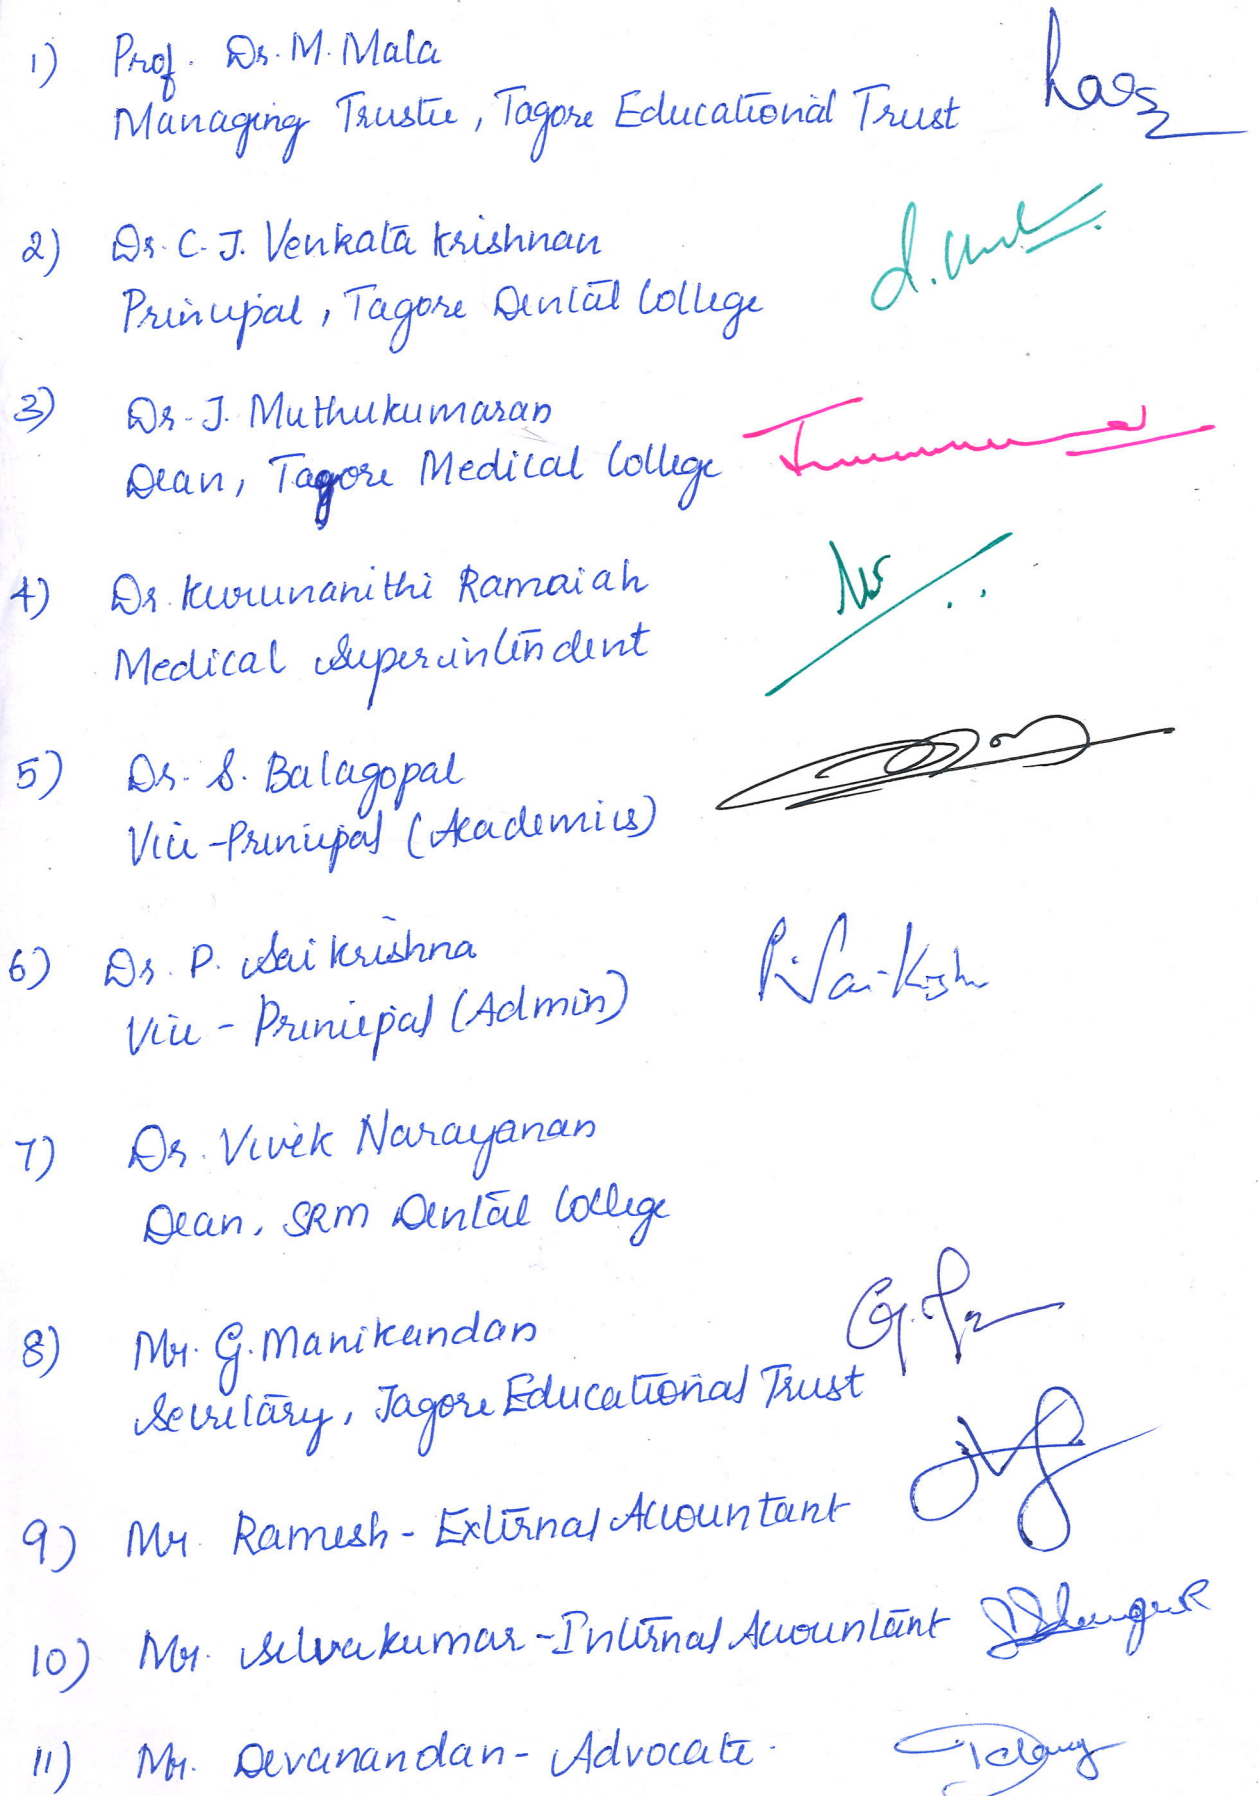 1) Prof. Dr. M. Mala
Managing Trustee, Tagore Educational Trust
2) Dr. C. J. Venkata krishnan
Principal, Tagore Dental College
3) Dr. J. Muthukumaran
Dean, Tagore Medical College
4) Dr. Kurunanithi Ramaiah
Medical Superintendent
5) Dr. S. Balagopal
Vice-Principal (Academics)
6) Dr. P. Sai krishna
Vice - Principal (Admin)
P. Sai-Krish
7) Dr. Vivek Narayanan
Dean, SRM Dental College
8) Mr. G. Manikandan
Secretary, Tagore Educational Trust
9) Mr. Ramesh - External Accountant
10) Mr. Selvakumar - Internal Accountant
11) Mr. Devanandan - Advocate.